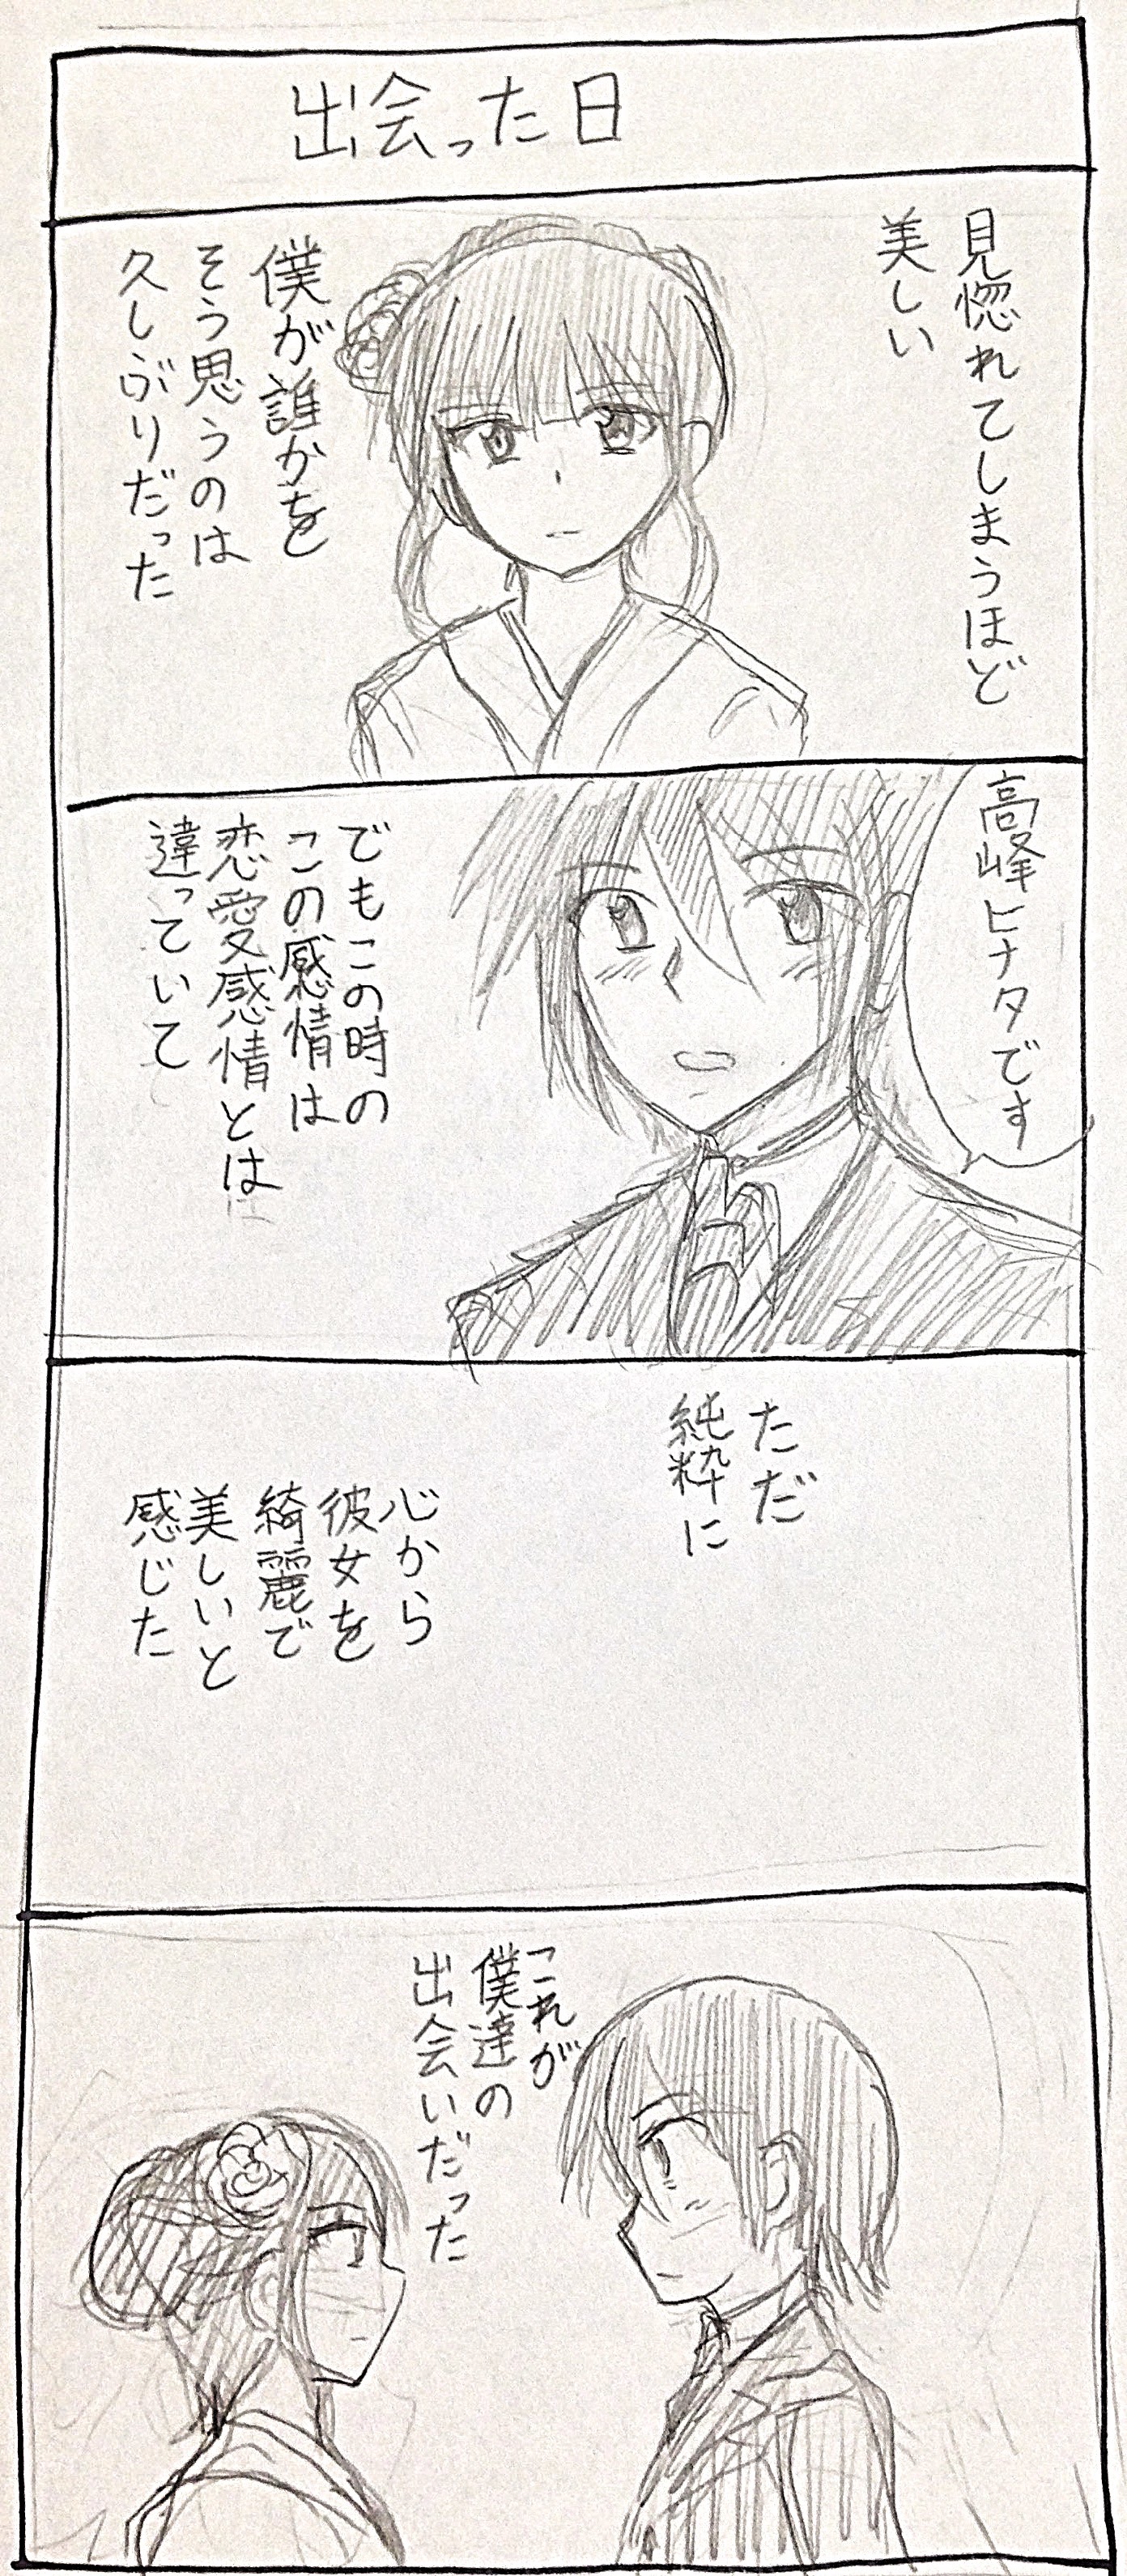 出会った日
見惚れてしまうほど
美しい
僕が誰かを
そう思うのは
久しぶりだった
高峰ヒナタです
でもこの時の
この感情は
恋愛感情とは
違っていて
ただ
純粋に
心から
彼女を
綺麗で
美しいと
感じた
これが
僕達の
出会いだった